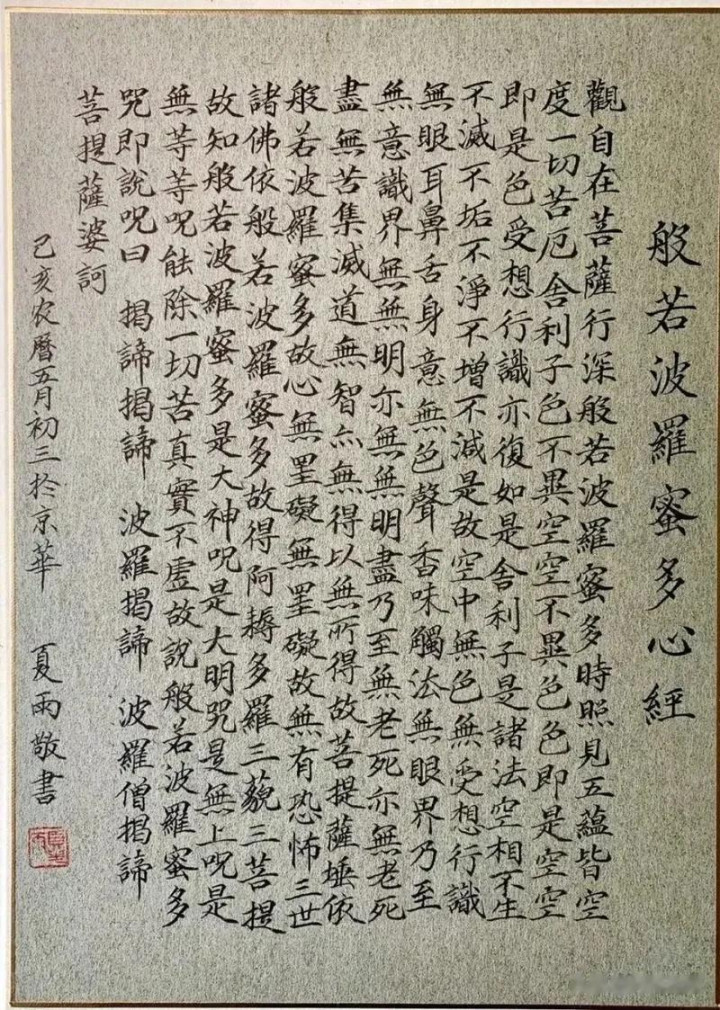 般若波羅蜜多心經
觀自在菩薩行深般若波羅蜜多時照見五蘊皆空
度一切苦厄舍利子色不異空空不異色色即是空空
即是色受想行識亦復如是舍利子是諸法空相不生
不滅不垢不淨不增不減是故空中無色無受想行識
無眼耳鼻舌身意無色聲香味觸法無眼界乃至
無意識界無無明亦無無明盡乃至無老死亦無老死
盡無苦集滅道無智亦無得以無所得故菩提薩埵依
般若波羅蜜多故心無罣礙無罣礙故無有恐怖三世
諸佛依般若波羅蜜多故得阿耨多羅三藐三菩提
故知般若波羅蜜多是大神咒是大明咒是無上咒是
無等等咒能除一切苦真實不虛故說般若波羅蜜多
咒即說咒曰 揭諦揭諦 波羅揭諦 波羅僧揭諦
菩提薩婆訶
己亥农曆五月初三於京華 夏雨敬書